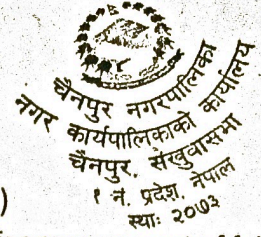 चैनपुर नगरपालिका
नगर कार्यपालिकाको कार्यालय
चैनपुर, संखुवासभा
१ नं. प्रदेश, नेपाल
स्था: २०७३
)